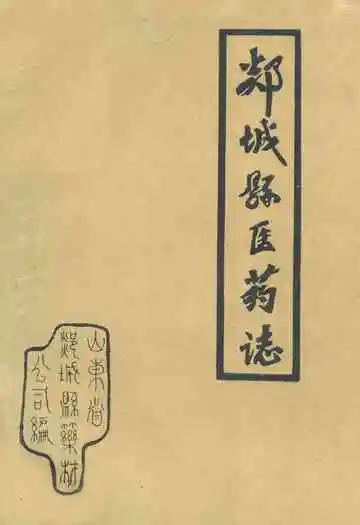 郯城縣医药誌
山東省
郯城縣藥材
公司編